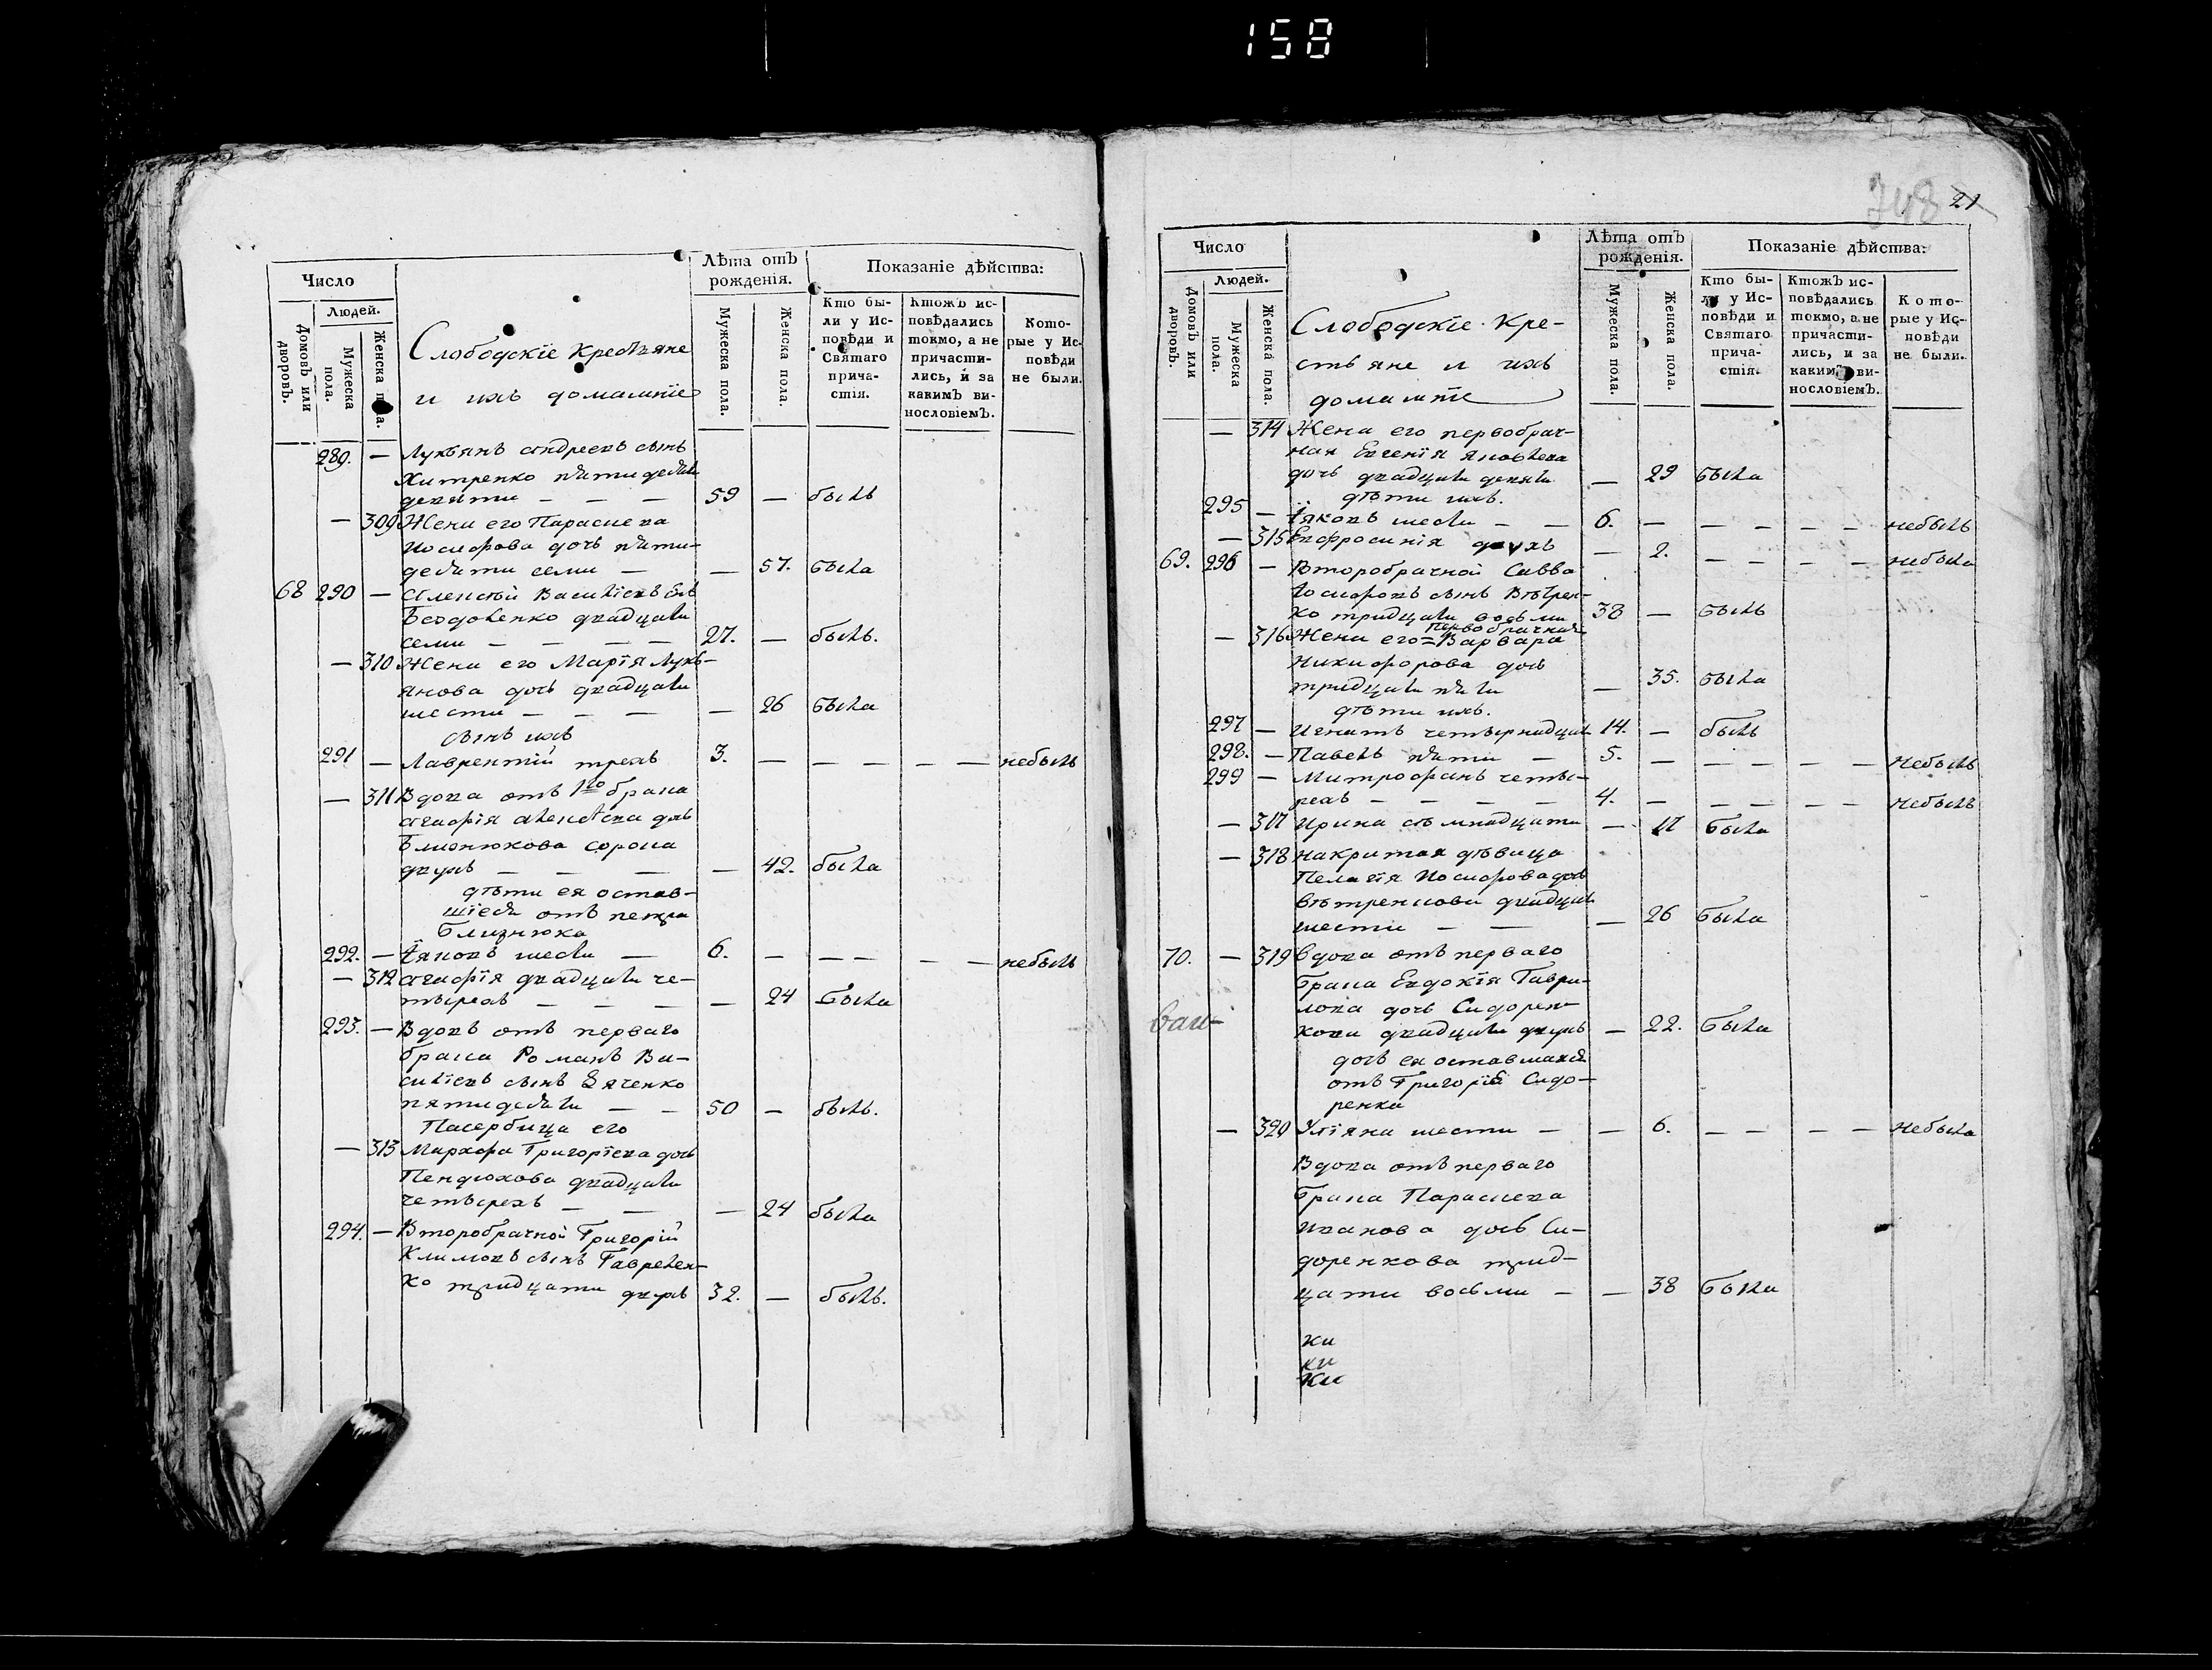 158
Число
Людей.
Домовъ или дворовъ.
Мужеска пола.
Женска пола.
Слободскіе крестьяне
и ихъ домашніе
Лѣта отъ
рожденія.
Мужеска пола.
Женска пола.
Показаніе дѣйства:
Кто бы-
ли у Ис-
повѣди и
Святаго
прича-
стія.
Ктожъ ис-
повѣдались
токмо, а не
причасти-
лись, и за
какимъ ви-
нословіемъ.
Кото-
рые у Ис-
повѣди
не были.
289. — Лукьянъ Андреевъ сынъ
Хитренко пятидесяти
девяти — — — 59 — былъ
— 309 Жена его Параскева
Іосифова дочь пяти-
десяти семи — — 57. была
68 290 — Алексѣй Василіевъ сынъ
двадцати
семи — — — — 27. — былъ.
— 310 Жена его Марія Лукь-
янова дочь двадцати
шести — — — — 26 была
сынъ ихъ
291 — Лаврентій трехъ 3. — — — — — небылъ
— 311 Вдова отъ 1го брака
Агафія Алексѣева дочь
Близнюкова сорока
двухъ — — — — 42. была
дѣти ея остав-
шіеся отъ Петра
Близнюка
292. — Іяковъ шести — 6. — — — — — небылъ
— 312 Агафія двадцати че-
тырехъ — — — — 24 была
293. — Вдовъ отъ перваго
брака Романъ Ва-
силіевъ сынъ Дяченко
пятидесяти — — 50 — былъ.
Пасербица его
— 313 Марфа Григоріева дочь
Пендюхова двадцати
четырехъ — — — 24 была
294. — Второбрачной Григорій
Климовъ сынъ Гаврелен-
ко тридцати двухъ 32. — былъ.
348 21
Число
Людей.
Домовъ или дворовъ.
Мужеска пола.
Женска пола.
Слободскіе Кре-
стьяне и ихъ
домашніе
Лѣта отъ
рожденія.
Мужеска пола.
Женска пола.
Показаніе дѣйства:
Кто бы-
ли у Ис-
повѣди и
Святаго
прича-
стія.
Ктожъ ис-
повѣдались
токмо, а не
причасти-
лись, и за
какимъ ви-
нословіемъ.
Кото-
рые у Ис-
повѣди
не были.
— 314 Жена его первобрач-
ная Евгенія Яковлева
дочь двадцати девяти — 29 была
дѣти ихъ.
295 — Іяковъ шести — — 6. — — — — — небылъ
— 315 Евфросинія двухъ — 2. — — — — небыла
69. 296 — Второбрачной Савва
Іосифовъ сынъ Вѣтрен-
ко тридцати восьми 38 — былъ
первобрачная
— 316 Жена его = Варвара
Никифорова дочь
тридцати пяти — 35. была
дѣти ихъ.
297 — Игнатъ четырнадцати 14. — былъ
298. — Павелъ пяти — 5. — — — — — небылъ
299 — Митрофанъ четы-
рехъ — — — — 4. — — — — — небылъ
— 317 Ирина семнадцати — 17 была
— 318 накритая дѣвица
Пелагія Іосифова дочь
Вѣтренкова двадцати
шести — — — 26 была
70. — 319 Вдова отъ перваго
брака Евдокія Гаври-
лова дочь Сидорен-
кова двадцати двухъ — 22. была
дочь ея оставшаяся
отъ Григорія Сидо-
ренка
— 320 Уліяна шести — — 6. — — — — небыла
Вдова отъ перваго
брака Параскева
Иванова дочь Си-
доренкова трид-
цати восьми — — 38 была
ки
ки
Ки